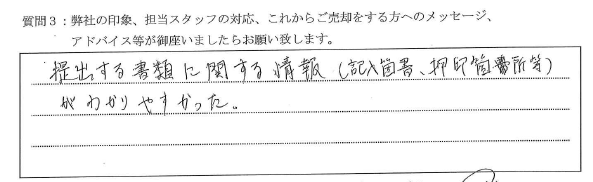 質問３：弊社の印象、担当スタッフの対応、これからご売却をする方へのメッセージ、
アドバイス等が御座いましたらお願い致します。
提出する書類に関する情報（記入箇書、押印箇所等）
がわかりやすかった。